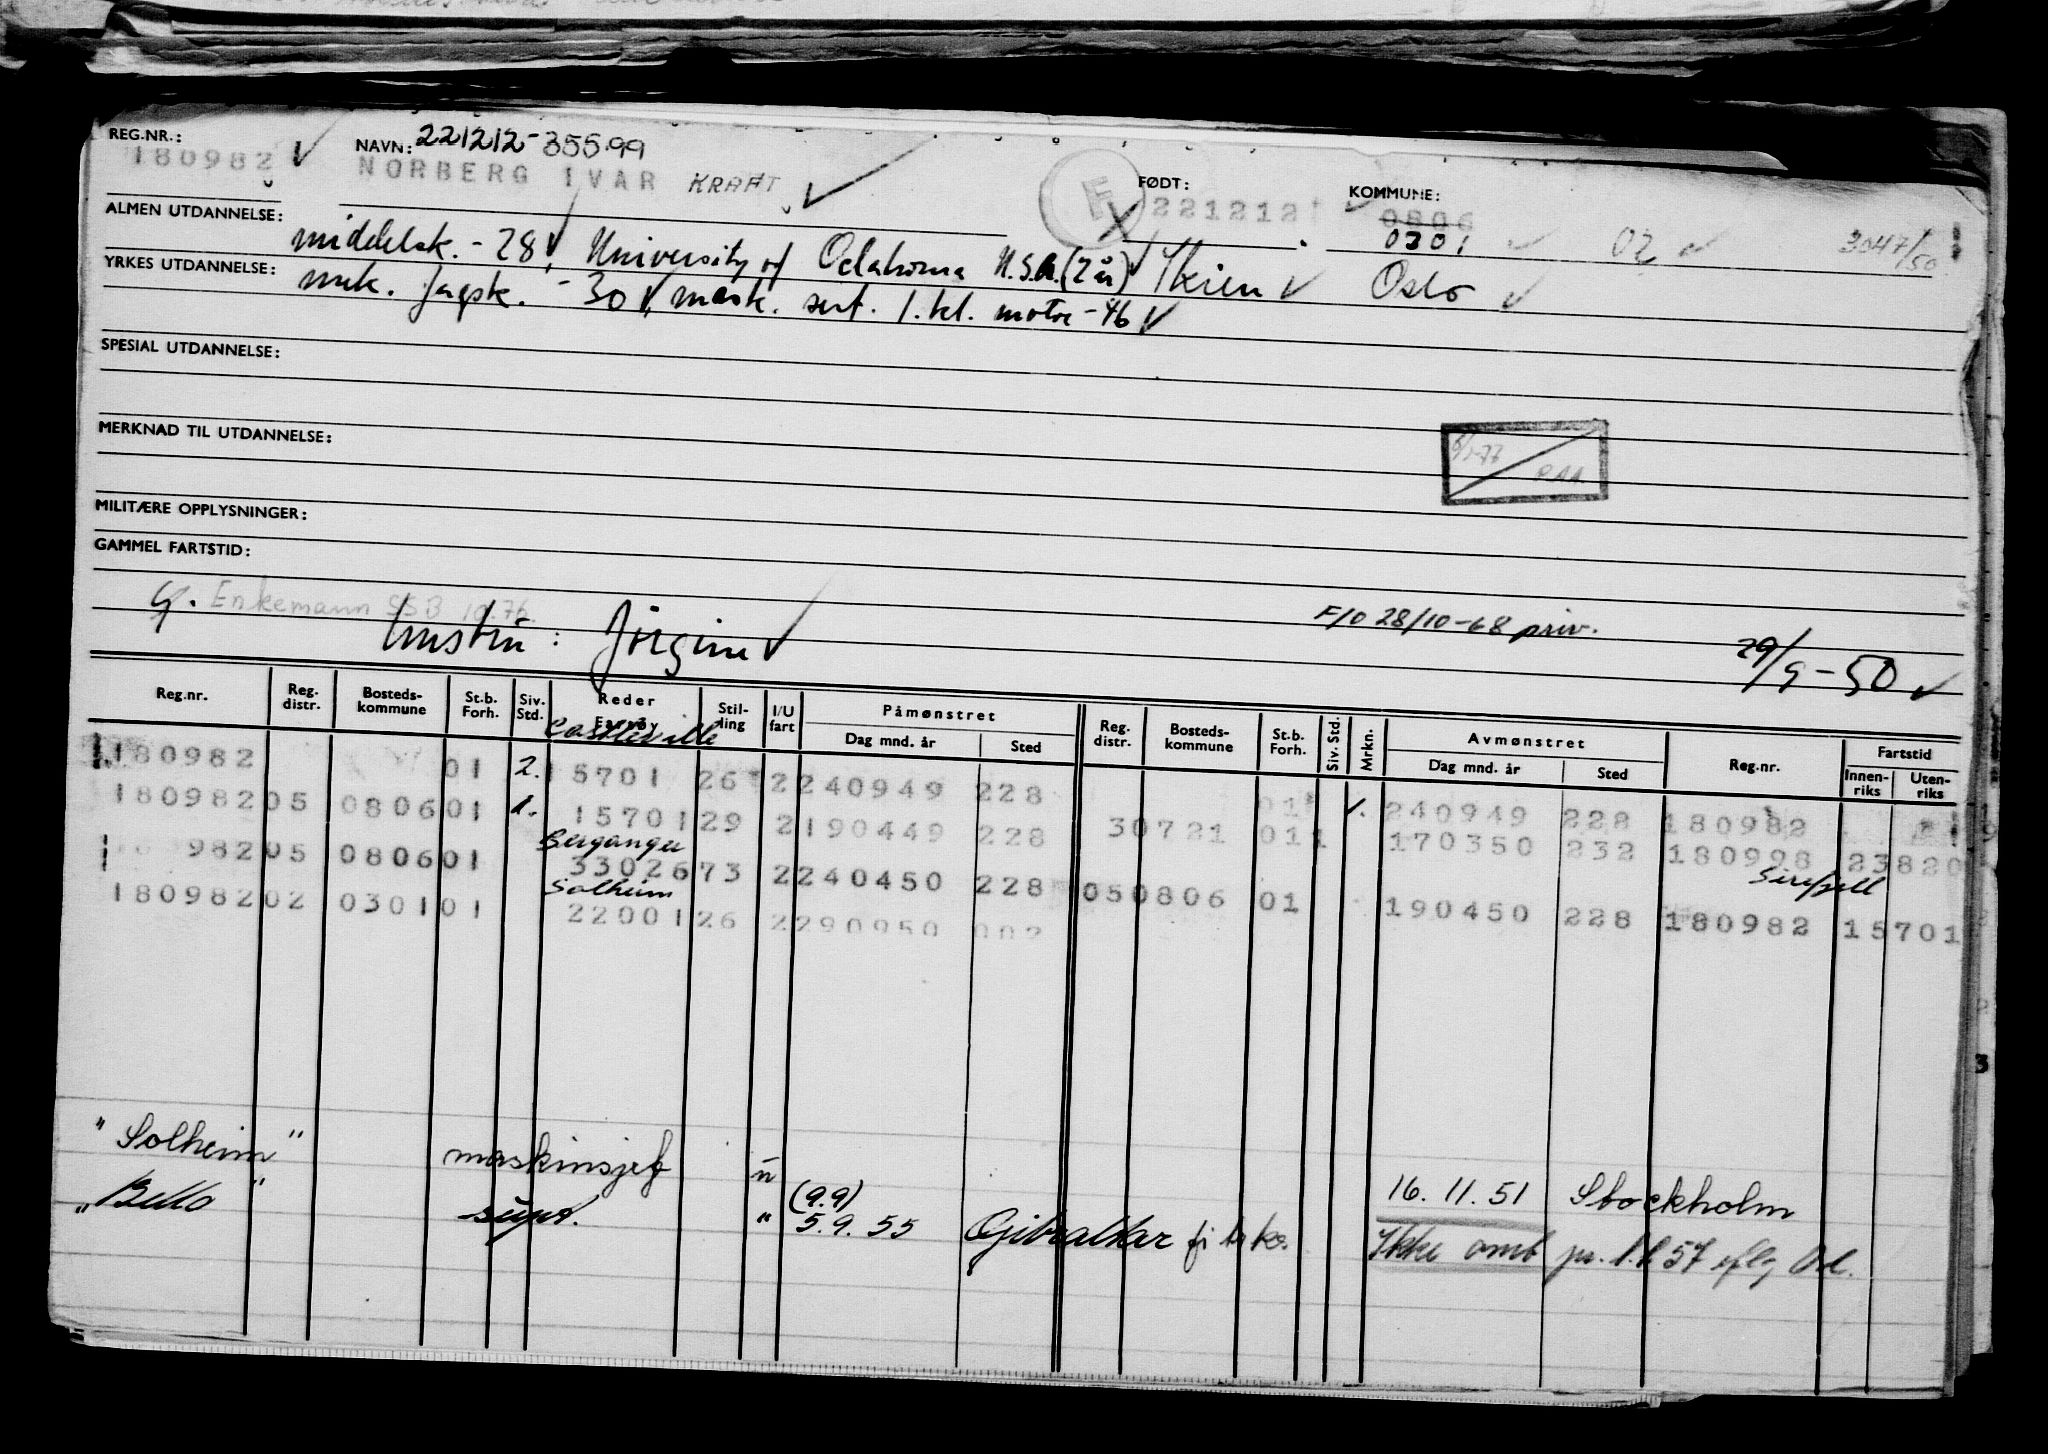 REG.NR.: NAVN: 221212-35599
180982 NORBERG IVAR KRAFT F FØDT: 221212 KOMMUNE: 0806
ALMEN UTDANNELSE: middelsk. - 28, University of Oclahoma U.S.A. (2 år) Skien 0301 Oslo 02 3047/50
YRKES UTDANNELSE: mek. fagsk. - 30, mask. sert. 1. kl. motor - 46
SPESIAL UTDANNELSE:
MERKNAD TIL UTDANNELSE:
MILITÆRE OPPLYSNINGER:
GAMMEL FARTSTID:
G. Enkemann SSB 10.76.
hustru : Jørgine F/O 28/10-68 priv. 29/9-50
Reg.nr. Reg. distr. Bosteds- kommune St.b. Forh. Siv. Std. Reder Fartøy Stil- ling I/U fart Påmønstret Dag mnd. år Sted Reg. distr. Bosteds- kommune St.b. Forh. Siv. Std. Mrkn. Avmønstret Dag mnd. år Sted Reg.nr. Fartstid Innen- riks Uten- riks
Castleville
180982 01 2. 15701 26 2 240949 228 01 1. 240949 228 180982
180982 05 0806 01 1. 15701 29 2 190449 228 30721 01 1 170350 232 180998 23820
Berganger Sirefjell
982 05 0806 01 33026 73 2 240450 228 05 0806 01 190450 228 180982 15701
Solheim
180982 02 0301 01 22001 26 2 290950 002
"Solheim" maskinsjef u 16. 11. 51 Stockholm
(9.9)
"Bello" supt. " 5.9.55 Gibraltar Ikke omb pr. 1.1.57